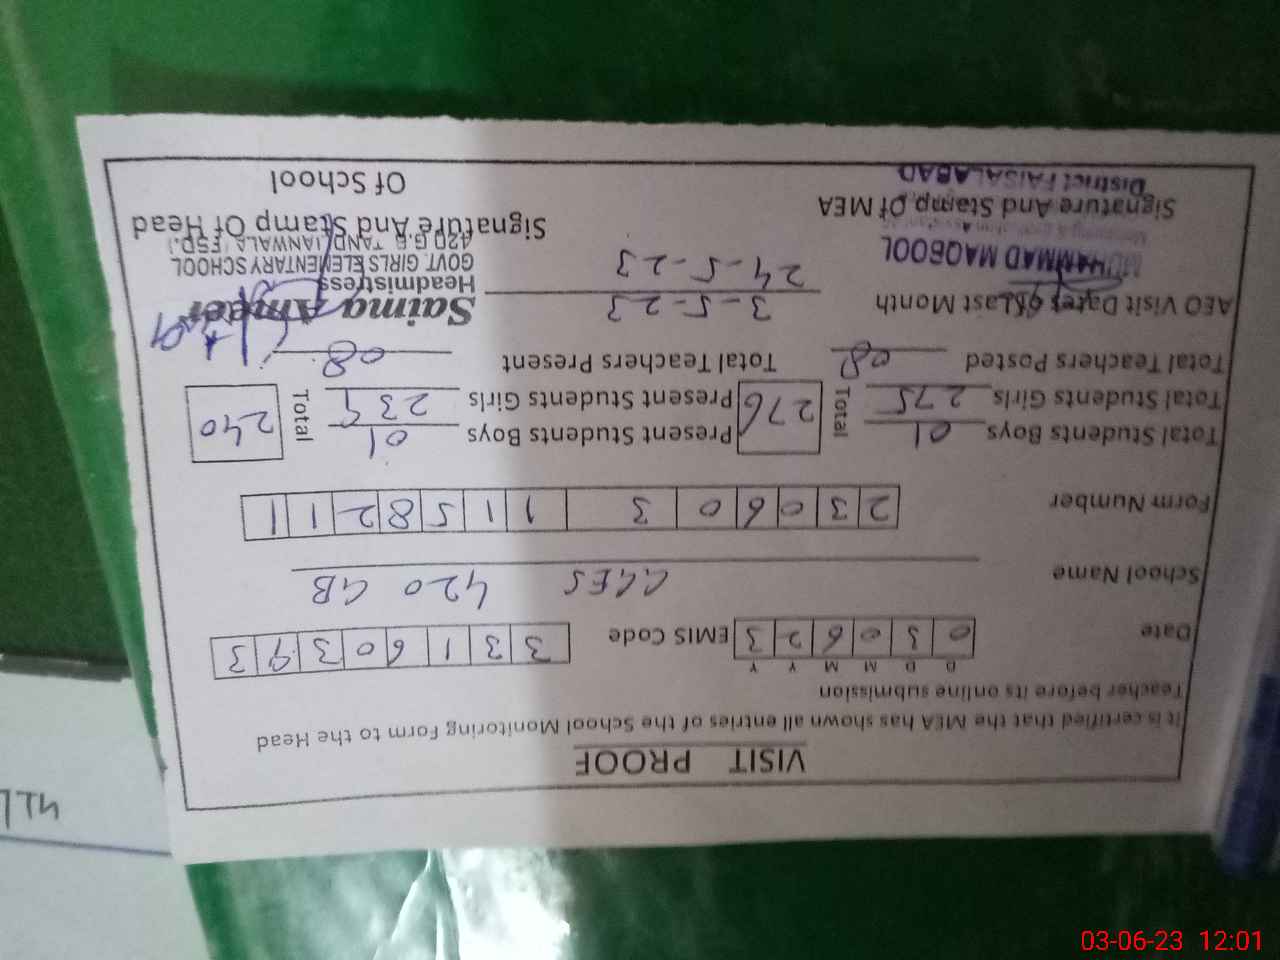 VISIT PROOF
It is certified that the MEA has shown all entries of the School Monitoring Form to the Head
Teacher before its online submission
D D M M Y Y
Date 0 3 0 6 2 3 EMIS Code 3 3 1 6 0 3 9 3
School Name GGES 420 GB
Form Number 2 3 0 6 0 3 1 1 5 8 2 1 1
Total Students Boys 01 Total 276 Present Students Boys 01 Total 240
Total Students Girls 275 Present Students Girls 239
Total Teachers Posted 08 Total Teachers Present 08
AEO Visit Dates Of Last Month 3-5-23
24-5-23
Saima Ameer
Headmistress
GOVT. GIRLS ELEMENTARY SCHOOL
420 G.B. TANDLIANWALA (FSD.)
MUHAMMAD MAQBOOL
District FAISALABAD
Signature And Stamp Of MEA
Signature And Stamp Of Head
Of School
03-06-23 12:01